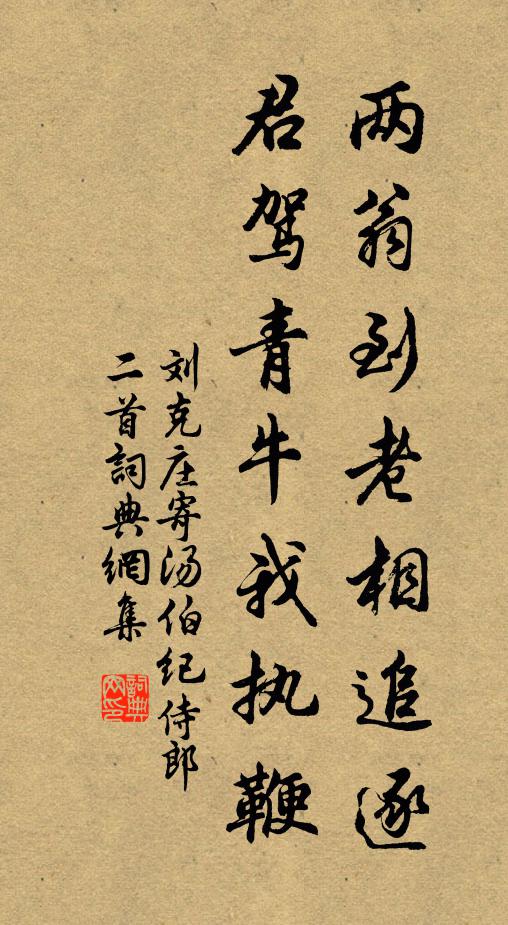 两翁到老相追逐
君驾青牛我执鞭
刘克庄寄汤伯纪侍郎
二首詞典網集
詞典